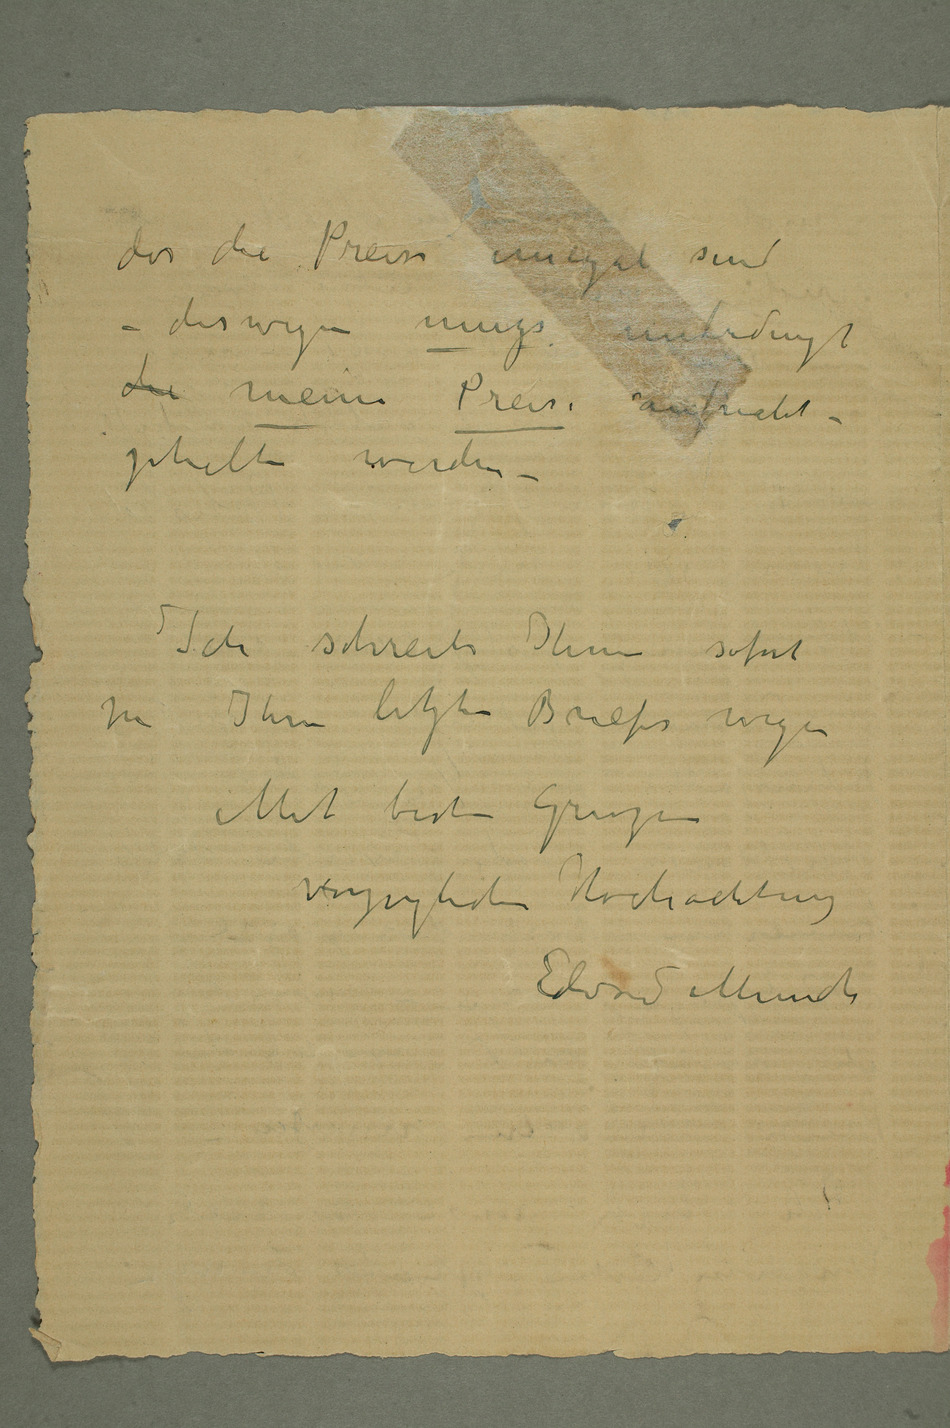 das die Preise unegal sind
– deswegen mugs unbedingt
die meine Preise aufrecht-
gehalten werden –
Ich schreibe Ihnen sofort
Ihren letzten Briefes wegen
Mit besten Gruzen
vorzuglichen Hochachtung
Edvard Munch